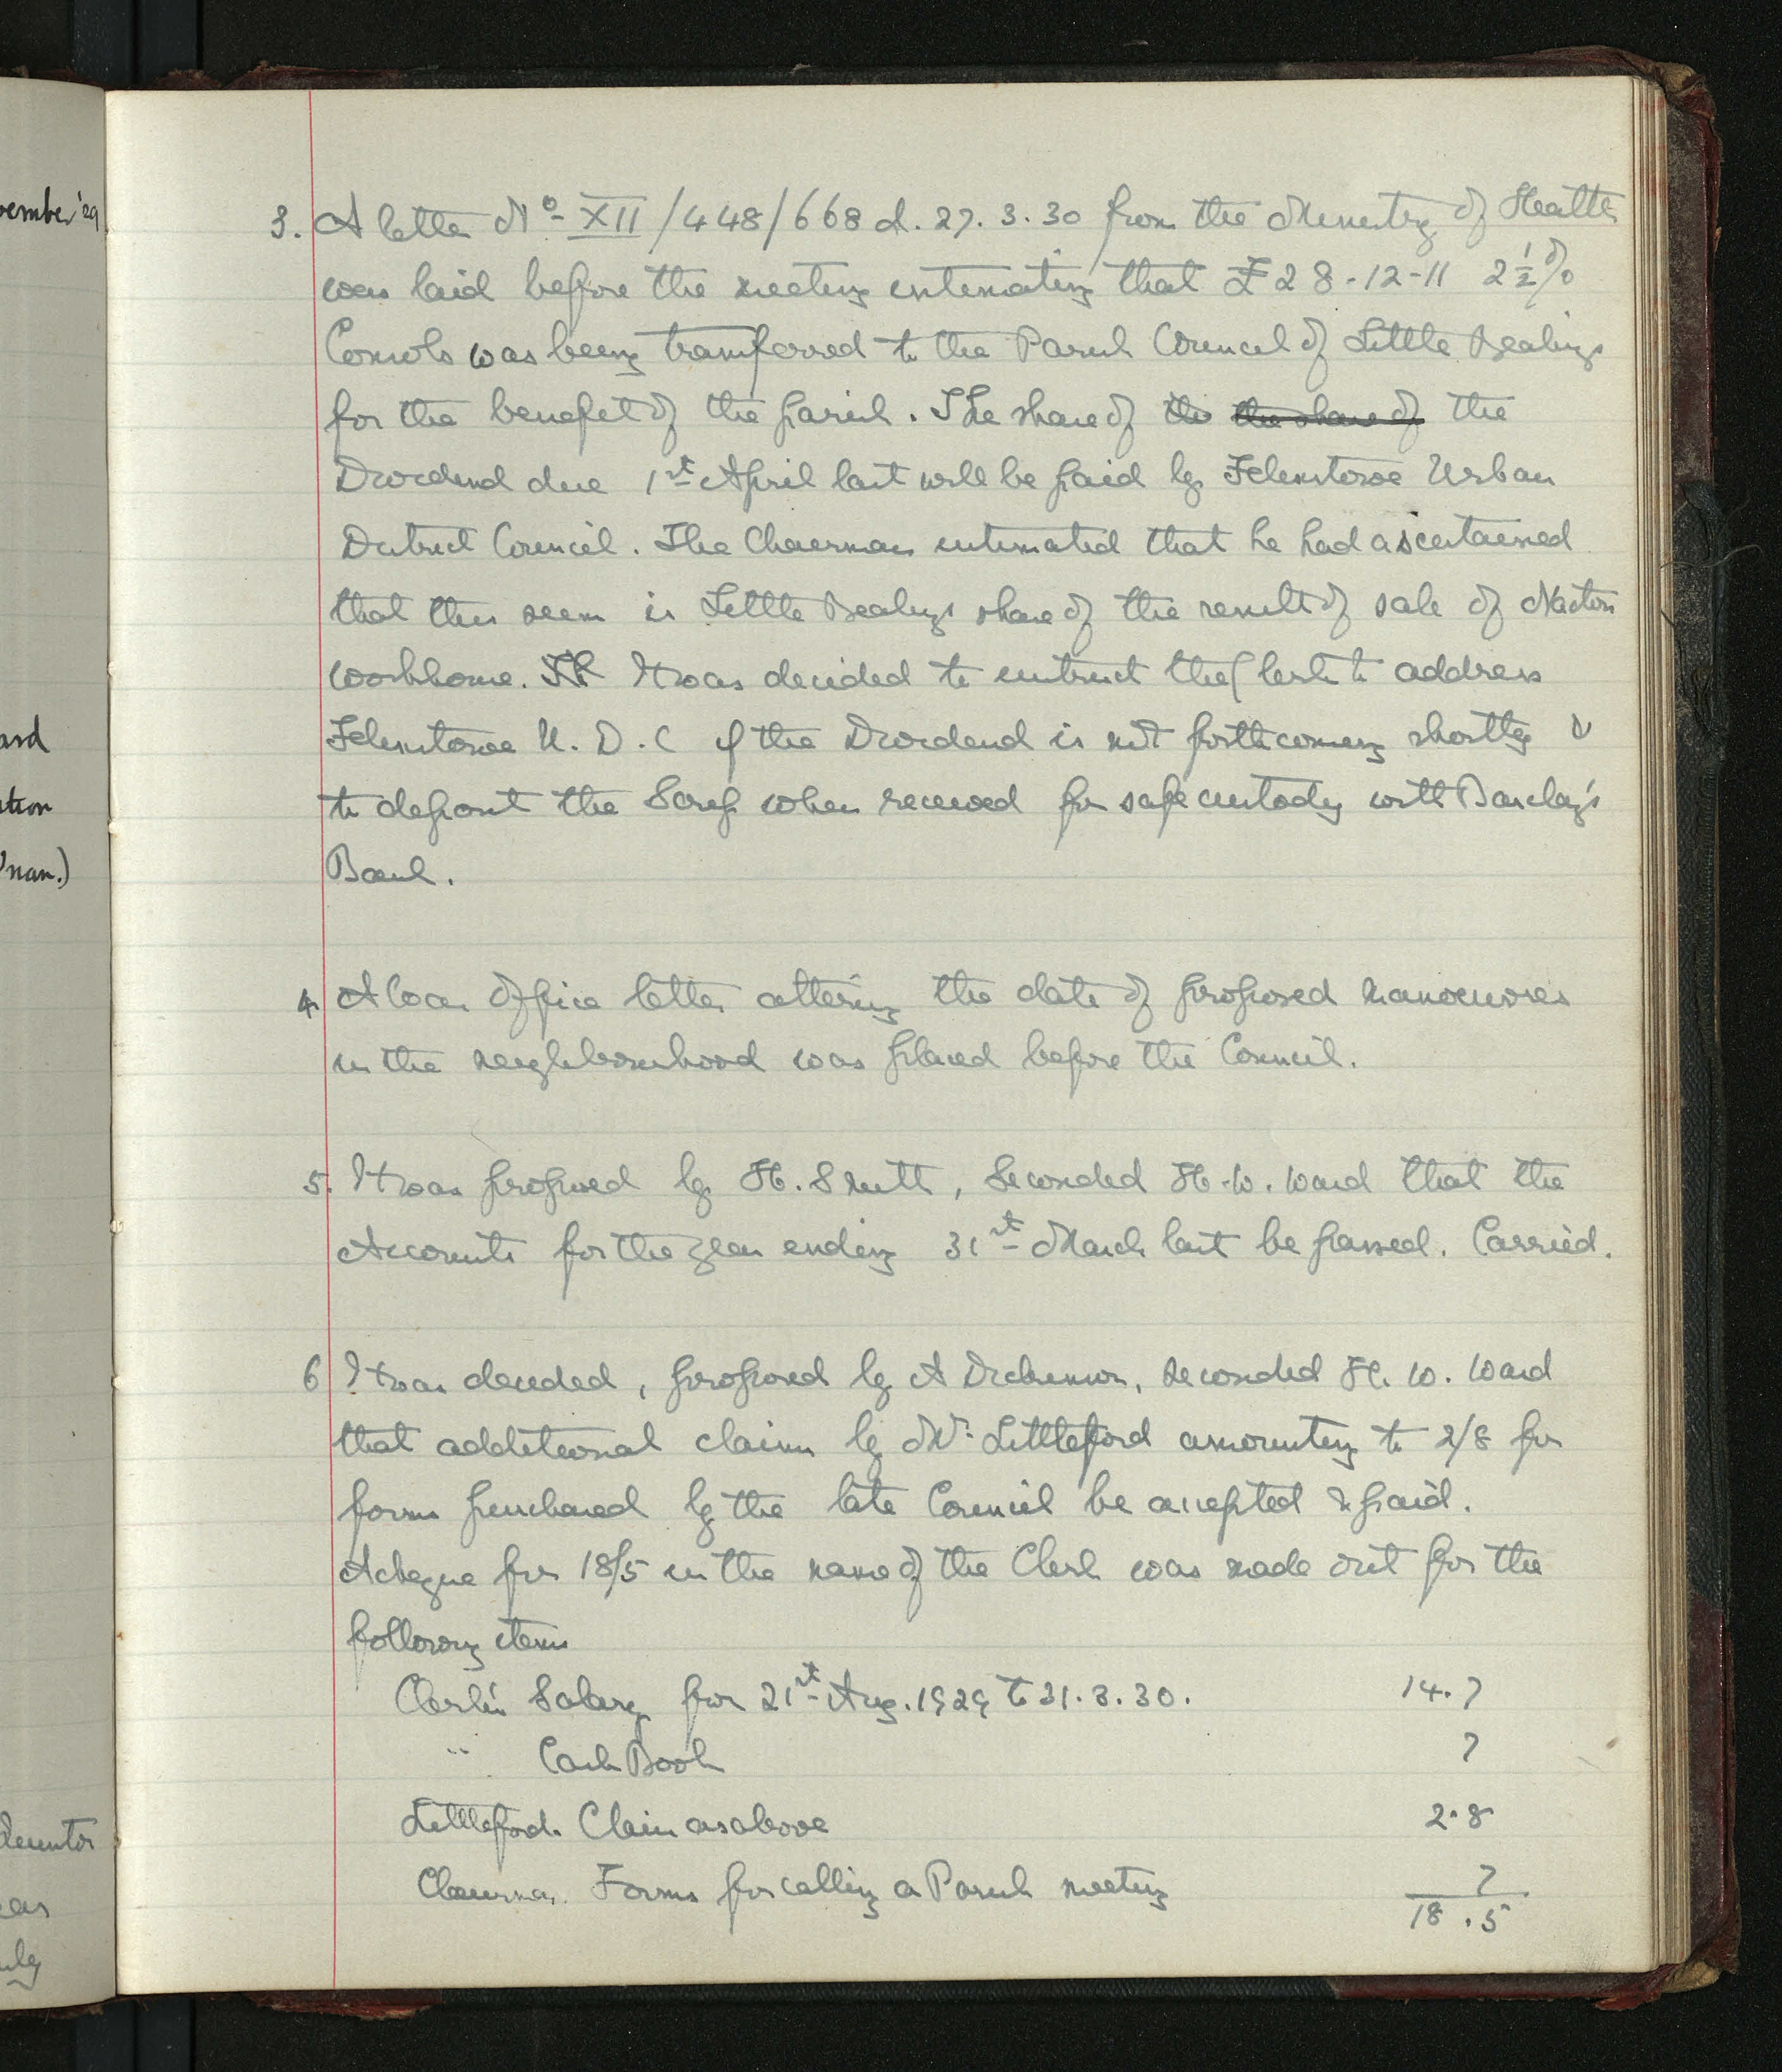 vember '29
ard
ation
man.)
ear
3. A letter No XII/448/668 d. 27.3.30 from the Ministry of Health
was laid before the meeting intimating that £28-12-11 2½%
Consols was being transferred to the Parish Council of Little Bealings
for the benefit of the parish. The share of the the share of the
Dividend due 1st April last will be paid by Felixstowe Urban
District Council. The Chairman intimated that he had ascertained
that this seem is Little Bealings share of the result of sale of Nacton
workhouse. Th It was decided to instruct the Clerk to address
Felixstowe U.D.C if the Dividend is not forthcoming shortly &
to deposit the Scrip when received for safe custody with Barclay's
Bank.
4. A War Office letter altering the date of proposed manoeuvres
in the neighbourhood was placed before the Council.
5. It was proposed by H. Smith, Seconded H.W. Ward that the
Accounts for the year ending 31st March last be passed. Carried.
6 It was decided, proposed by A Dickenson, seconded H. W. Ward
that additional claim by Mr. Littleford amounting to 2/8 for
forms purchased by the late Council be accepted & paid.
A cheque for 18/5 in the name of the Clerk was made out for the
following items
Clerk's Salary for 21st Aug. 1929 to 31.3.30. 14.7
" Cash Book 7
Littleford. Claim as above 2.8
Chairman. Forms for calling a Parish meeting 7
18.5